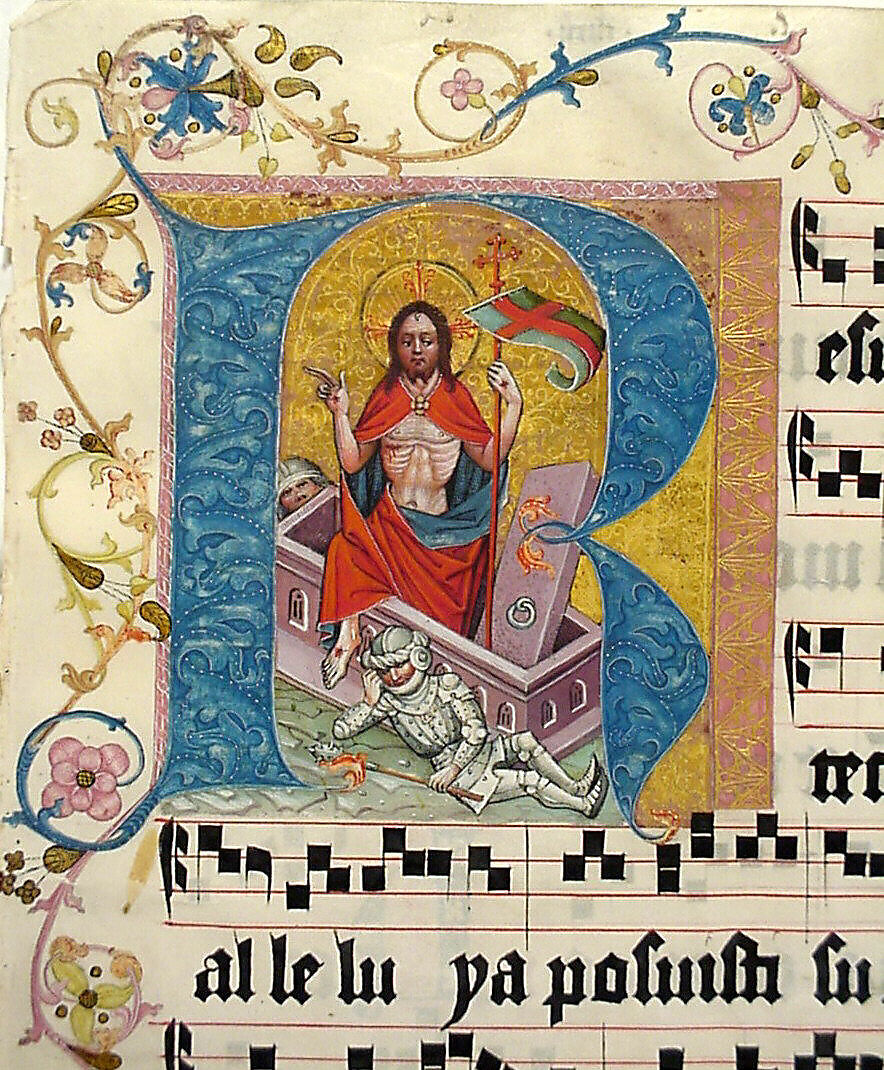 Resu
tec
al le lu ya posuisti su